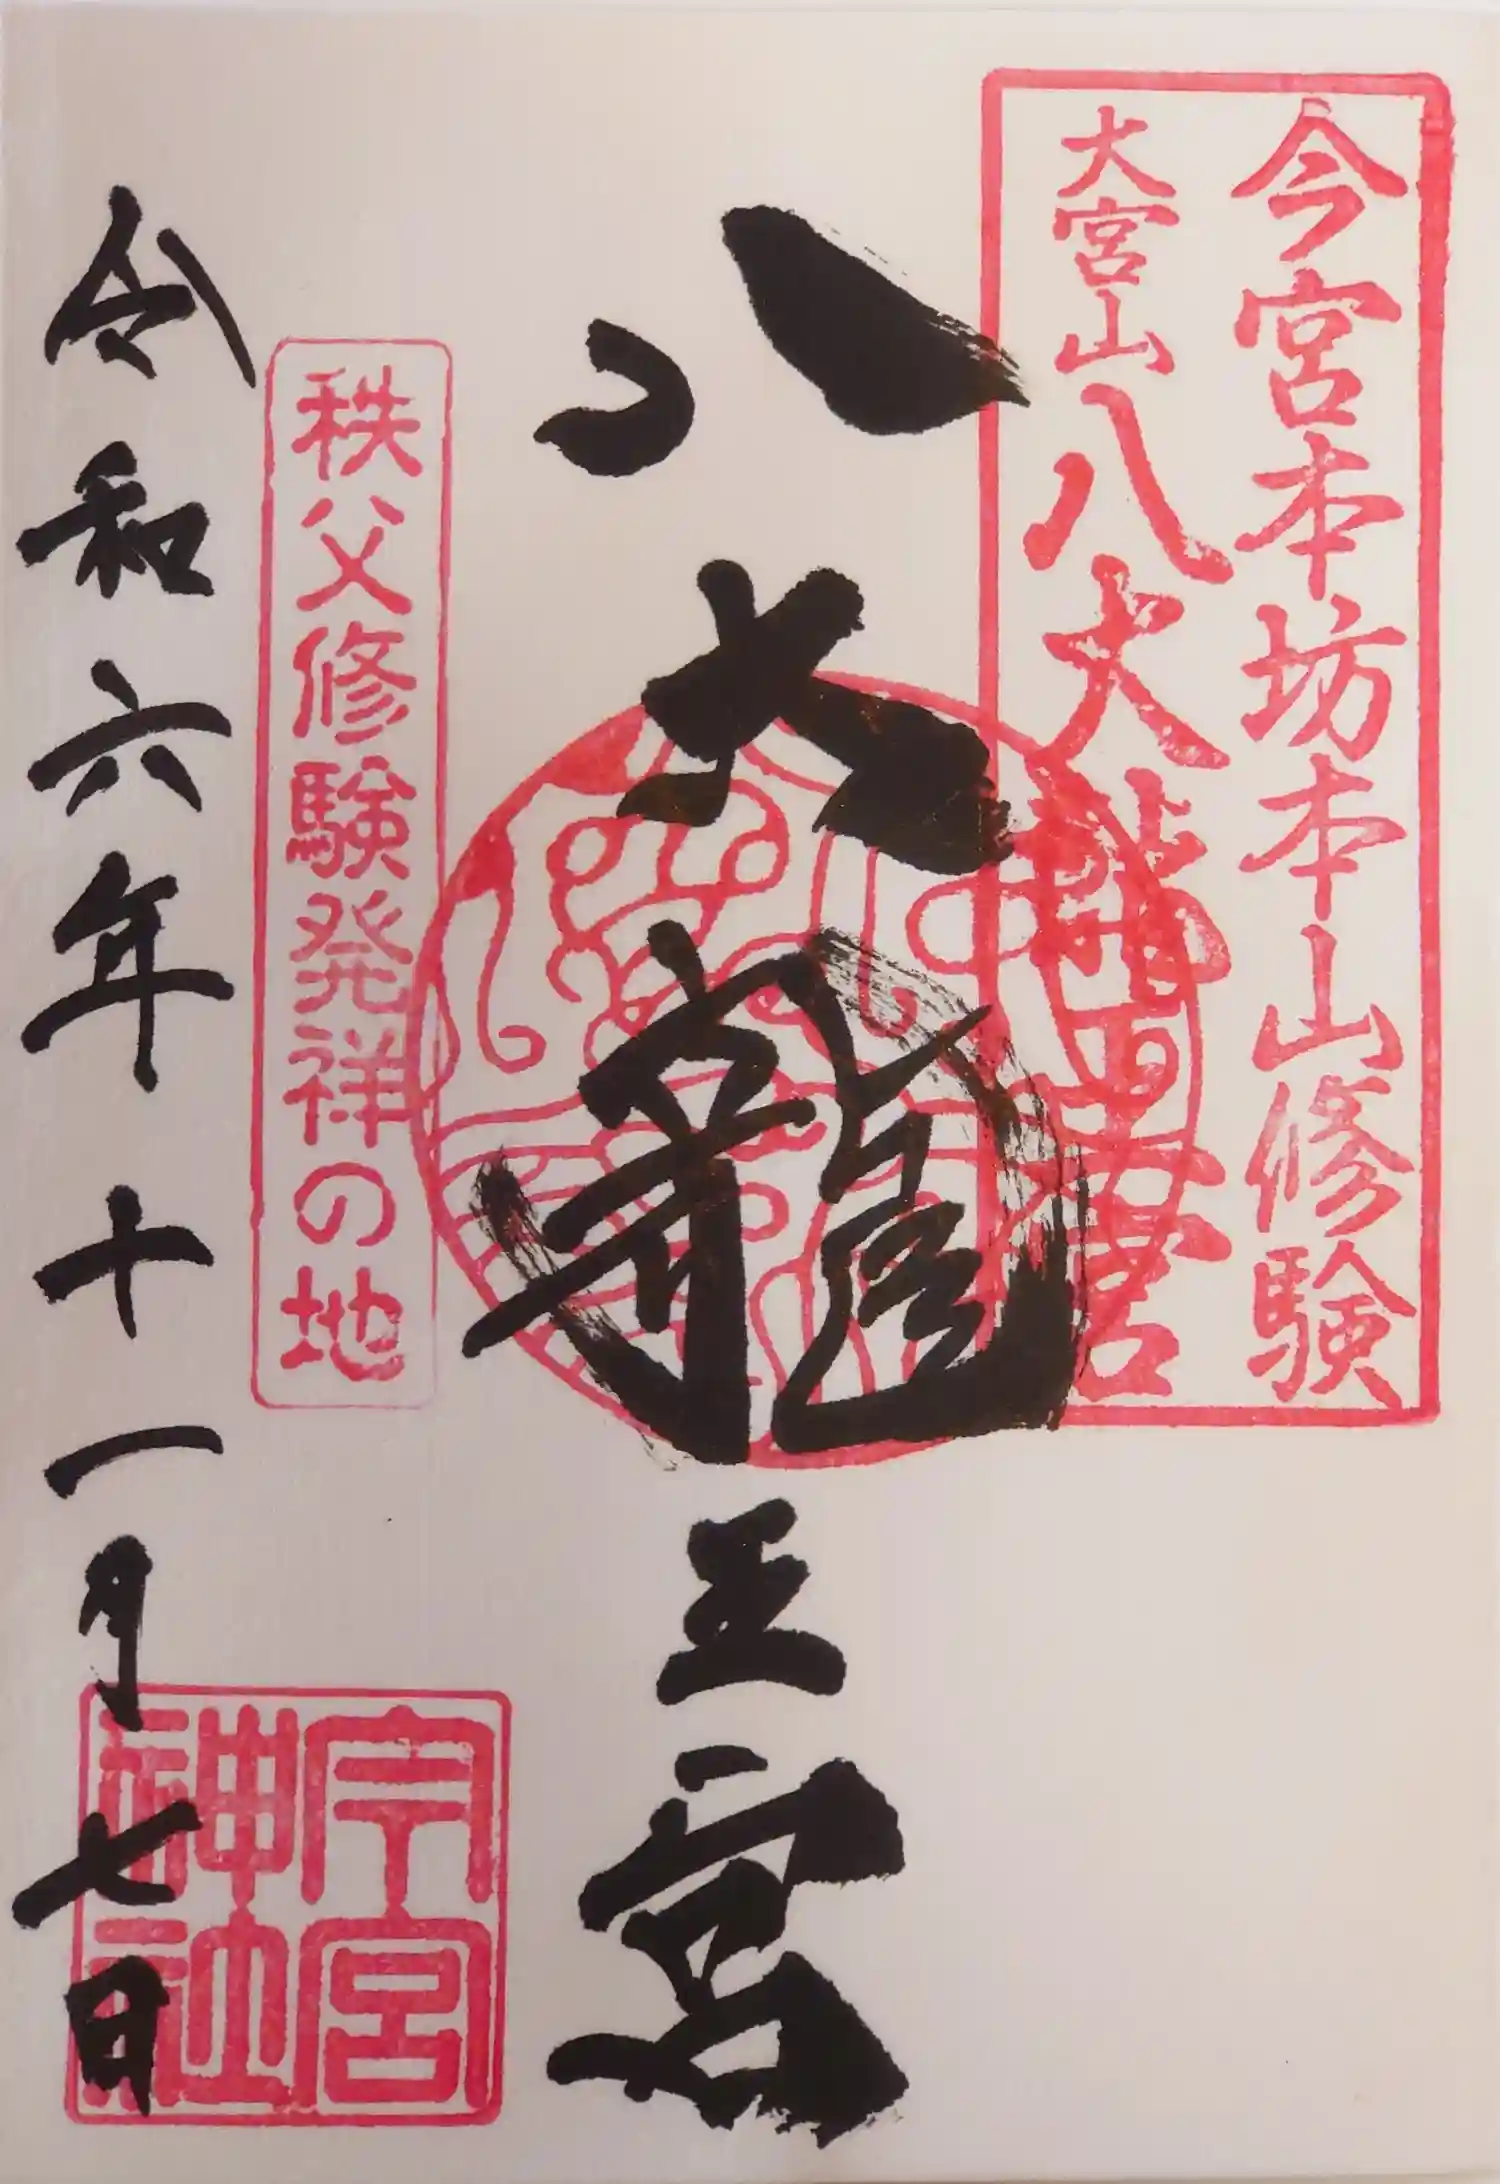 今宮本坊本山修験
大宮山八大龍王宮
八大龍王宮
秩父修験発祥の地
令和六年十一月七日
今宮
神社